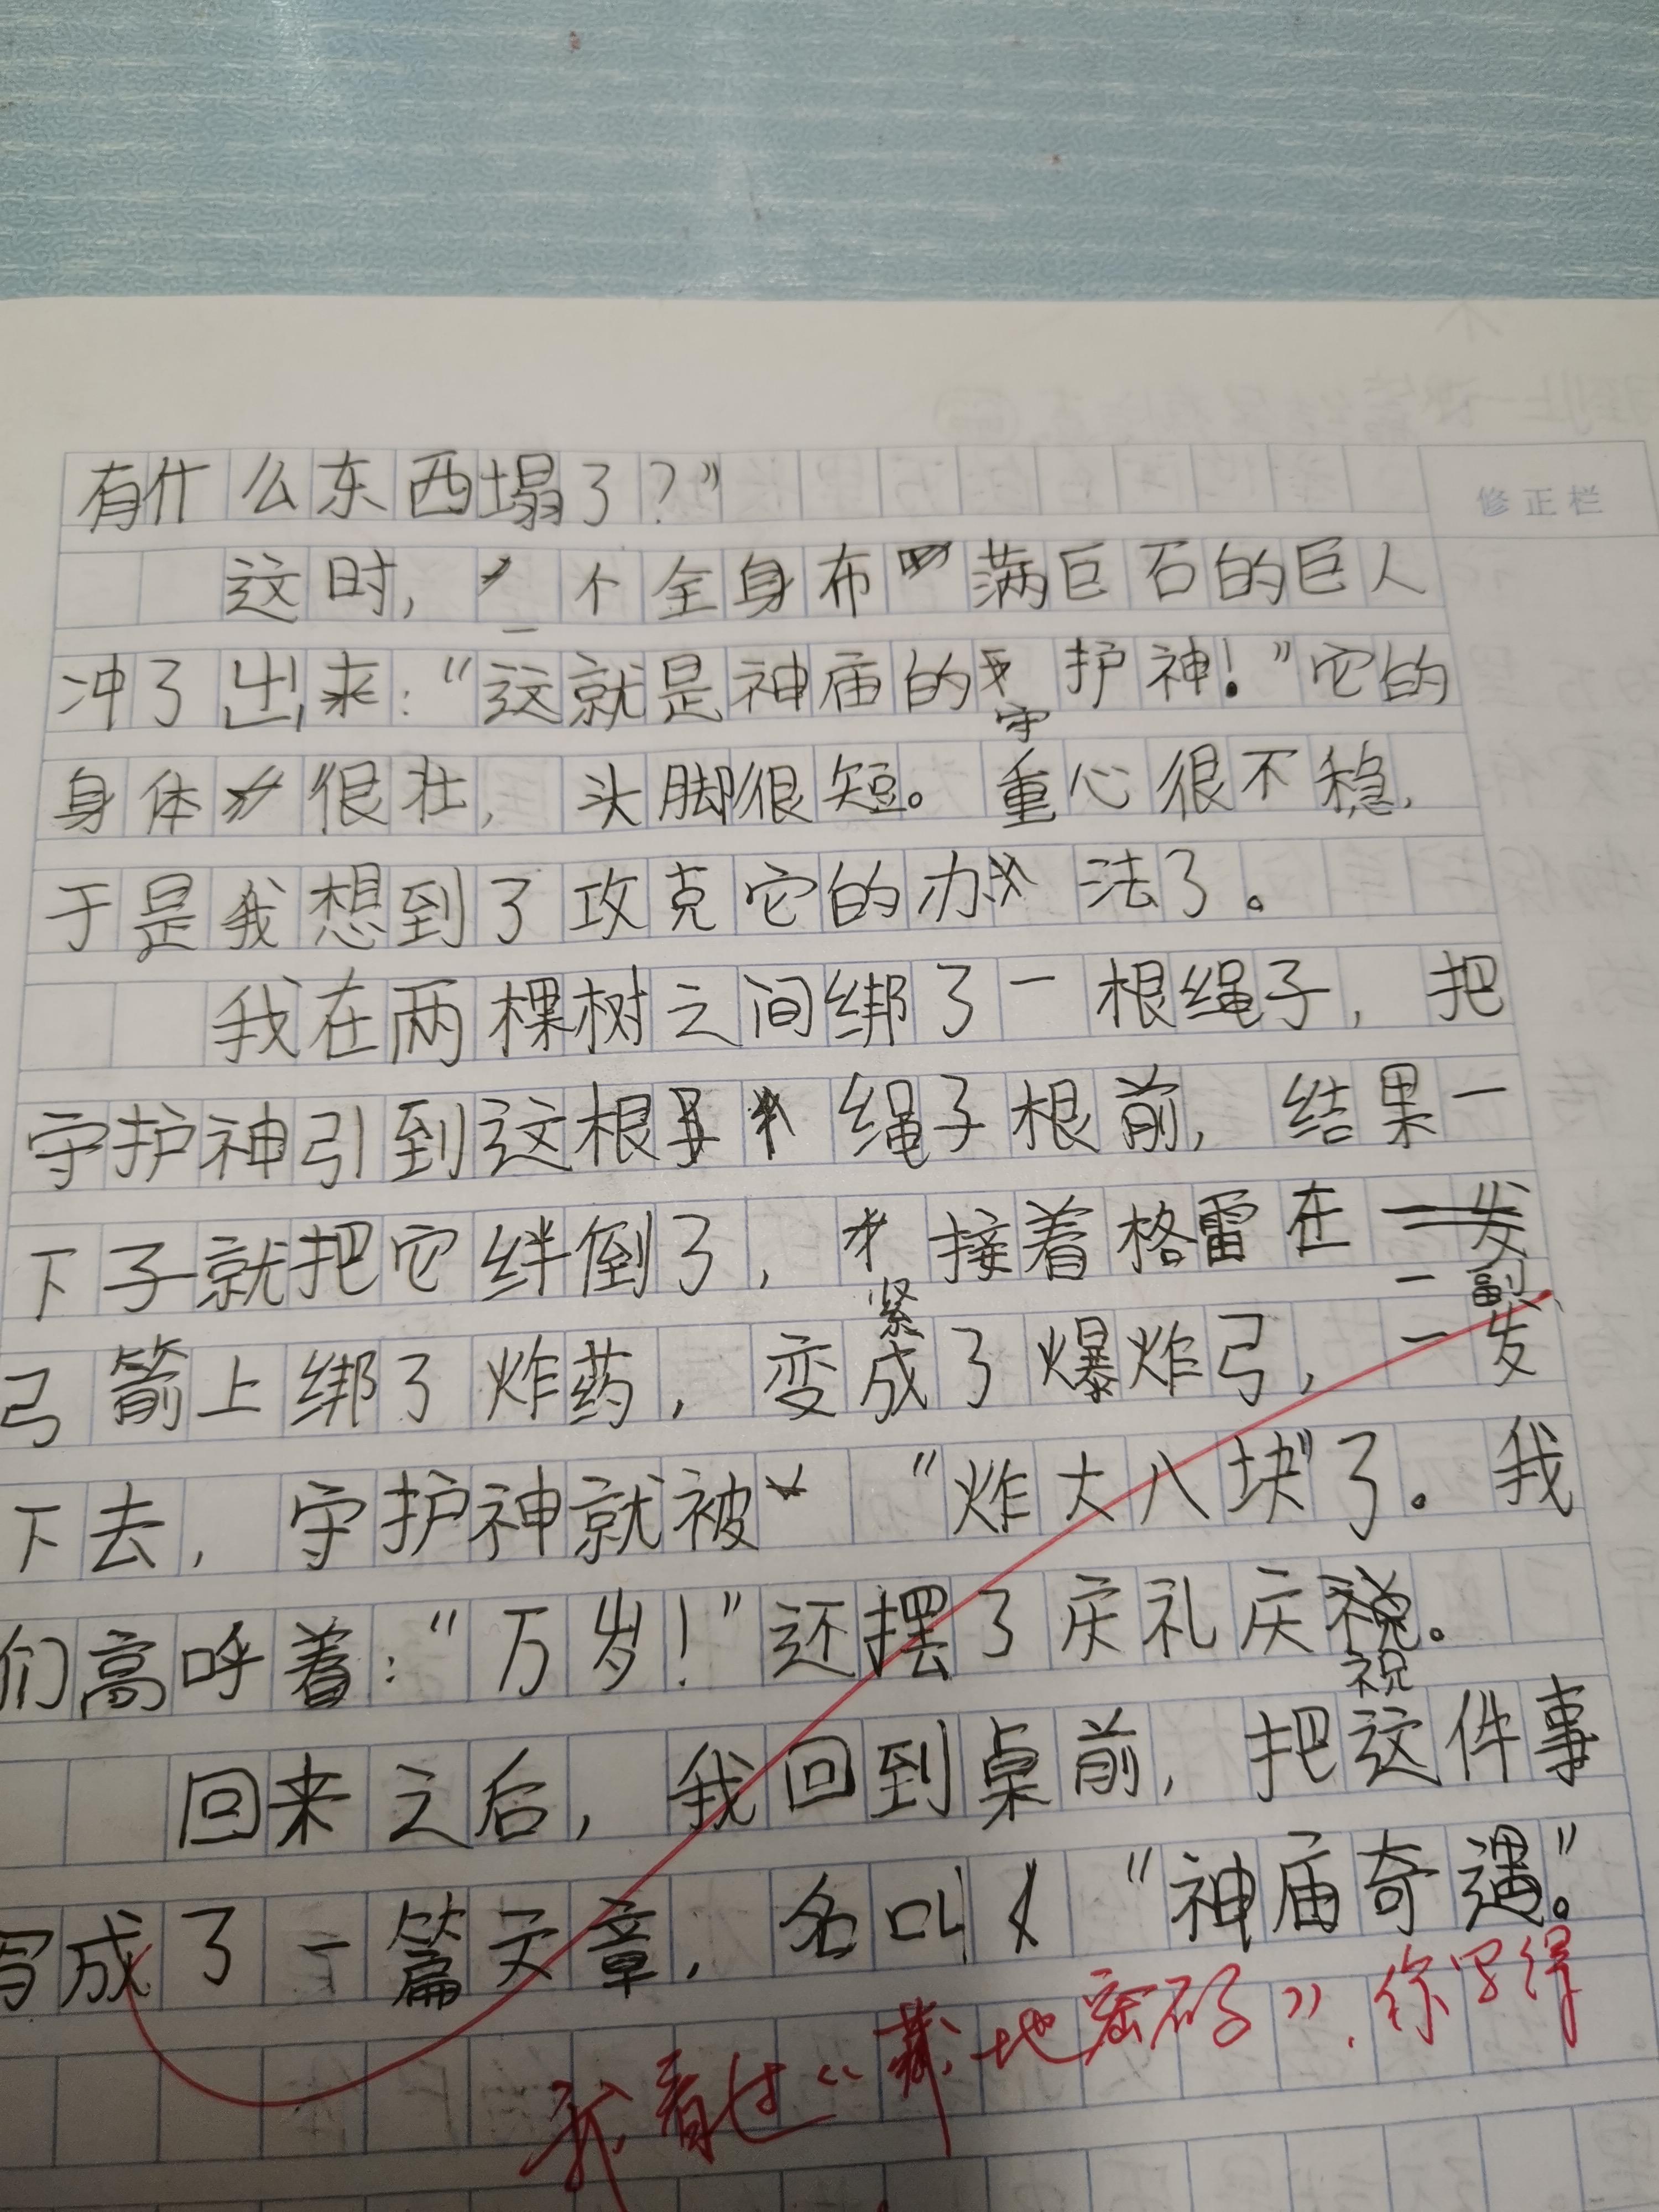 有什么东西塌了？”
修正栏
这时，一个全身布满巨石的巨人
冲了出来：“这就是神庙的守护神！”它的
身体很壮，头脚很短。重心很不稳，
于是我想到了攻克它的办法了。
我在两棵树之间绑了一根绳子，把
守护神引到这根绳子根前，结果一
下子就把它绊倒了，紧接着格雷在一副
弓箭上绑了炸药，变成了爆炸弓，一发
下去，守护神就被“炸大八块”了。我
们高呼着：“万岁！”还摆了庆礼庆祝。
回来之后，我回到桌前，把这件事
写成了一篇文章，名叫“神庙奇遇。”
我看过《藏地密码》，你写得